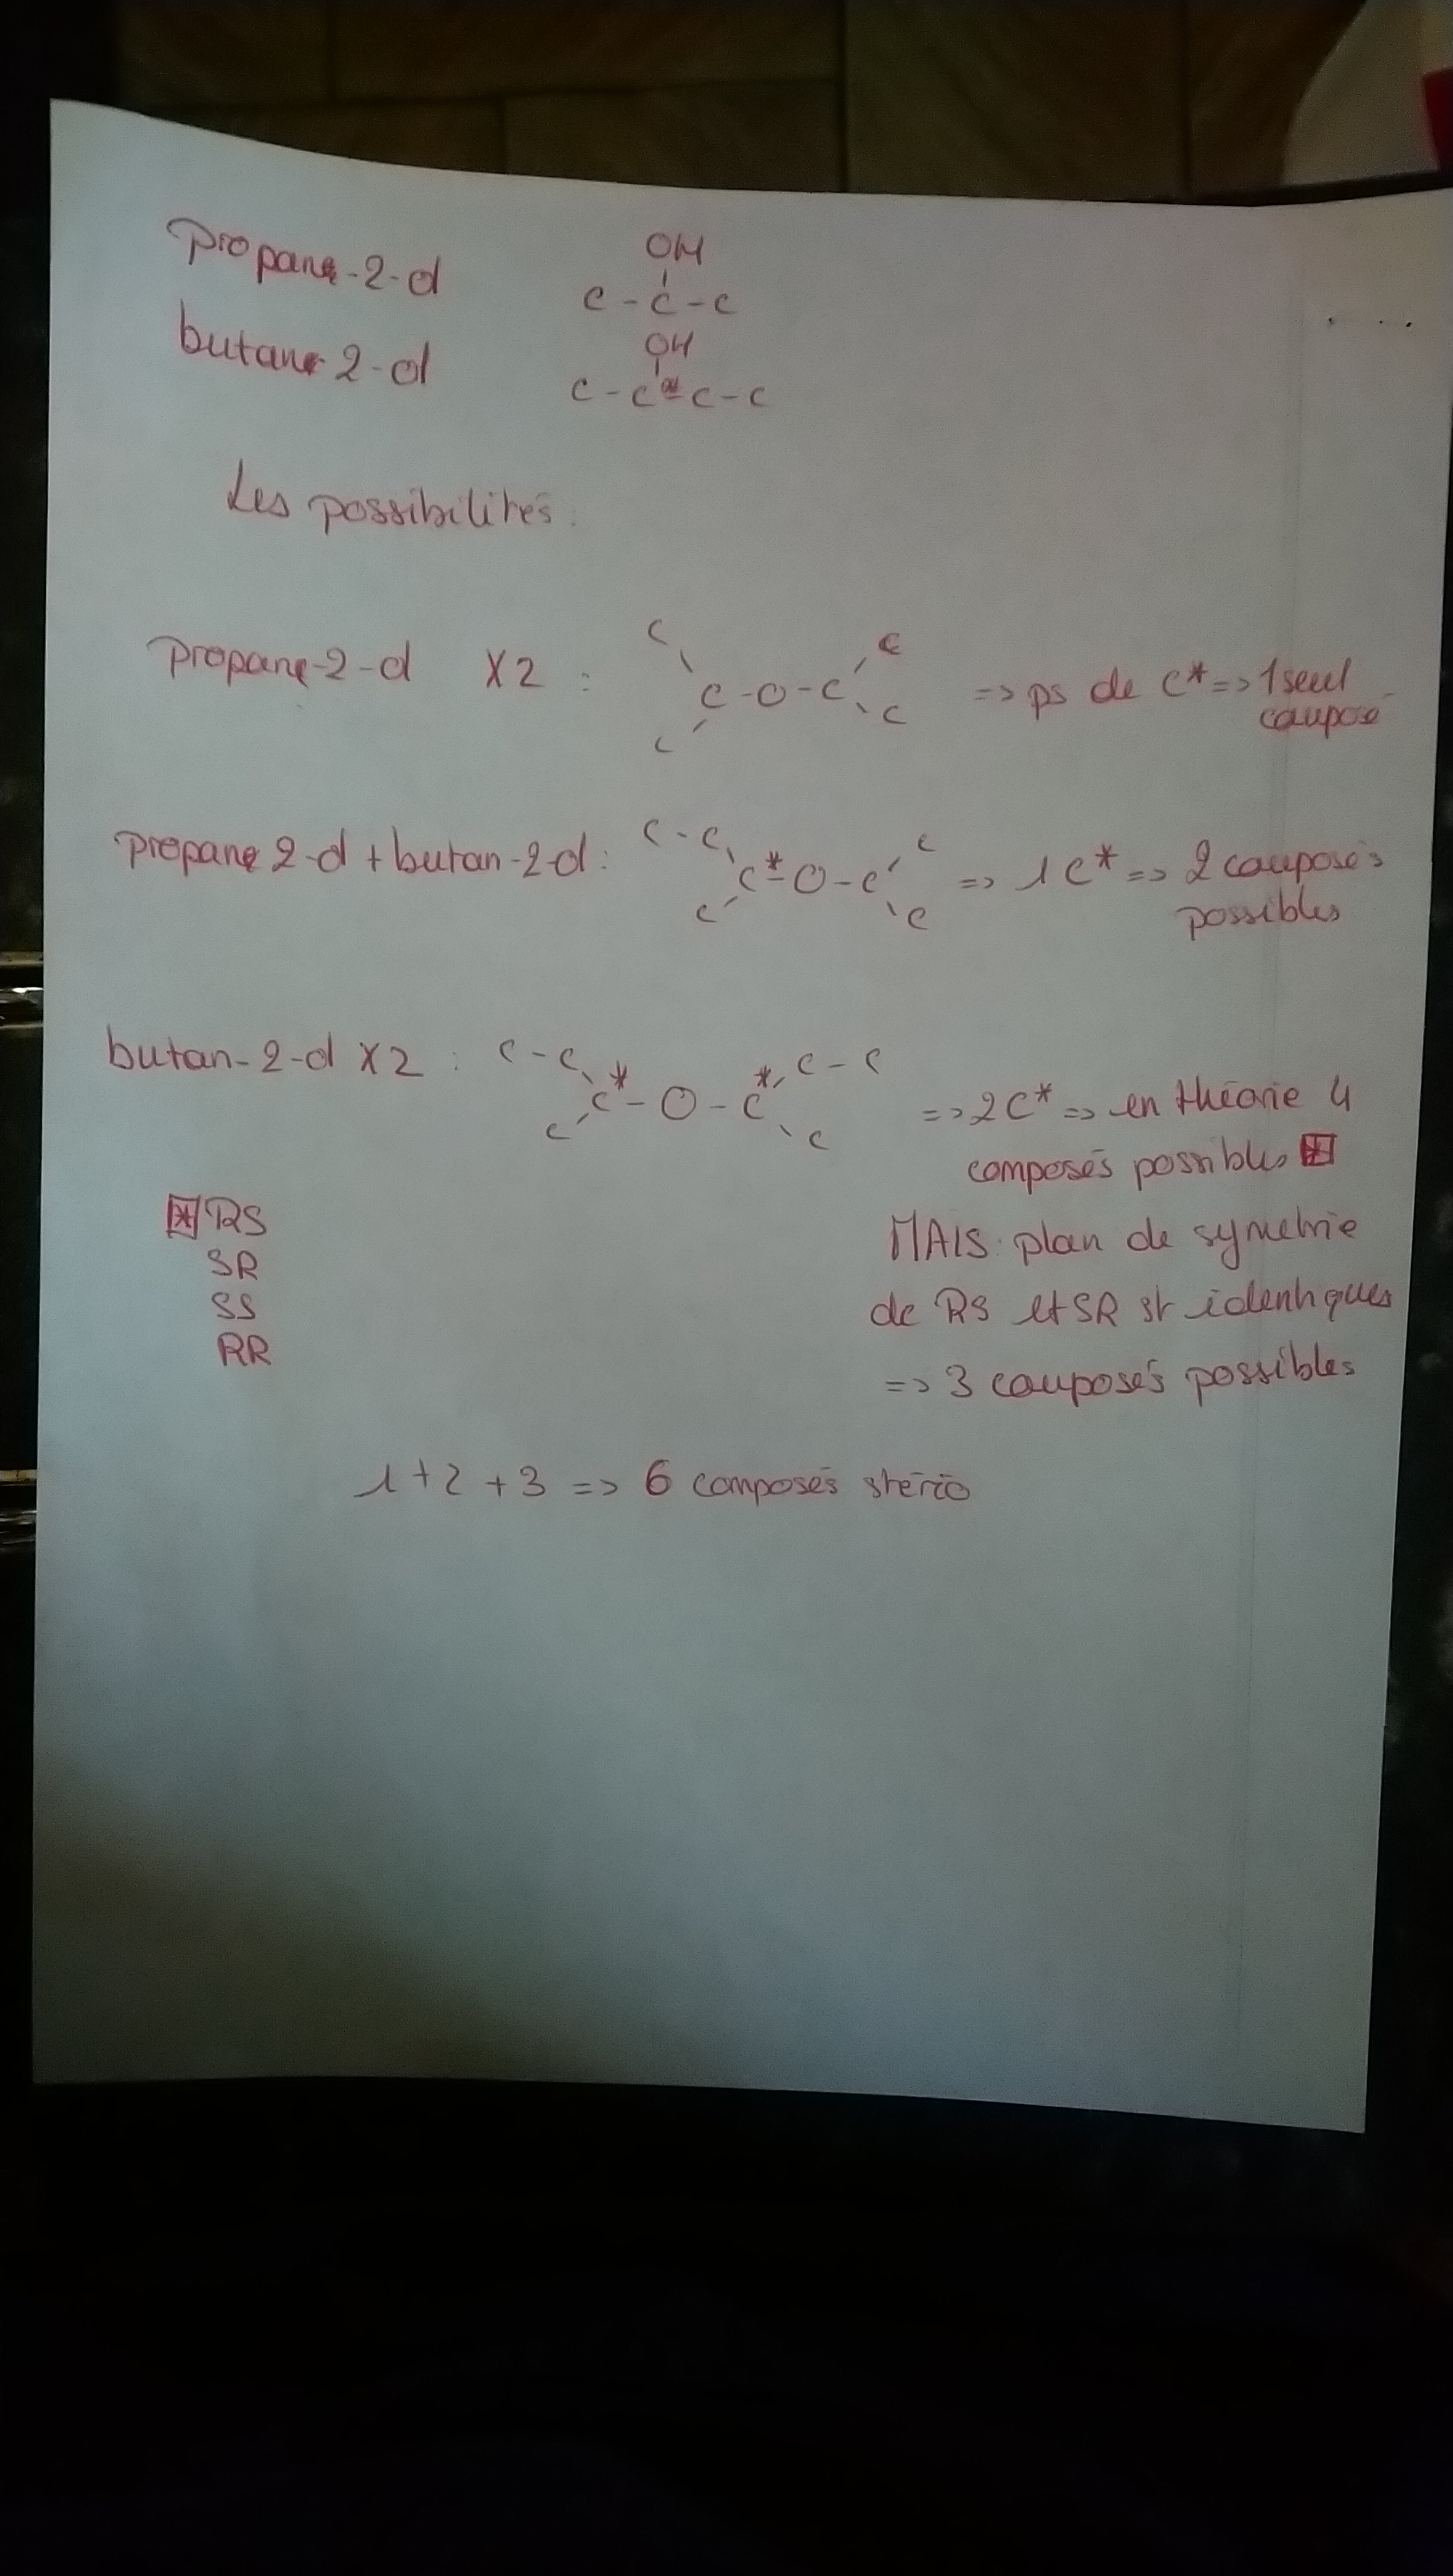 propane-2-ol
OH
C-C-C
butane-2-ol
OH
C-C*-C-C
Les possibilités:
propane-2-ol X2 :
C C
C-O-C => ps de C* => 1 seul
C C composé
propane 2-ol + butan-2-ol:
C-C C
C*-O-C => 1 C* => 2 composés
C C possibles
butan-2-ol X2 :
C-C C-C
C*-O-C* => 2C* => en théorie 4
C C composés possibles *
* RS
SR
SS
RR
MAIS: plan de symétrie
de RS et SR st identiques
=> 3 composés possibles
1+2+3 => 6 composés stéréo